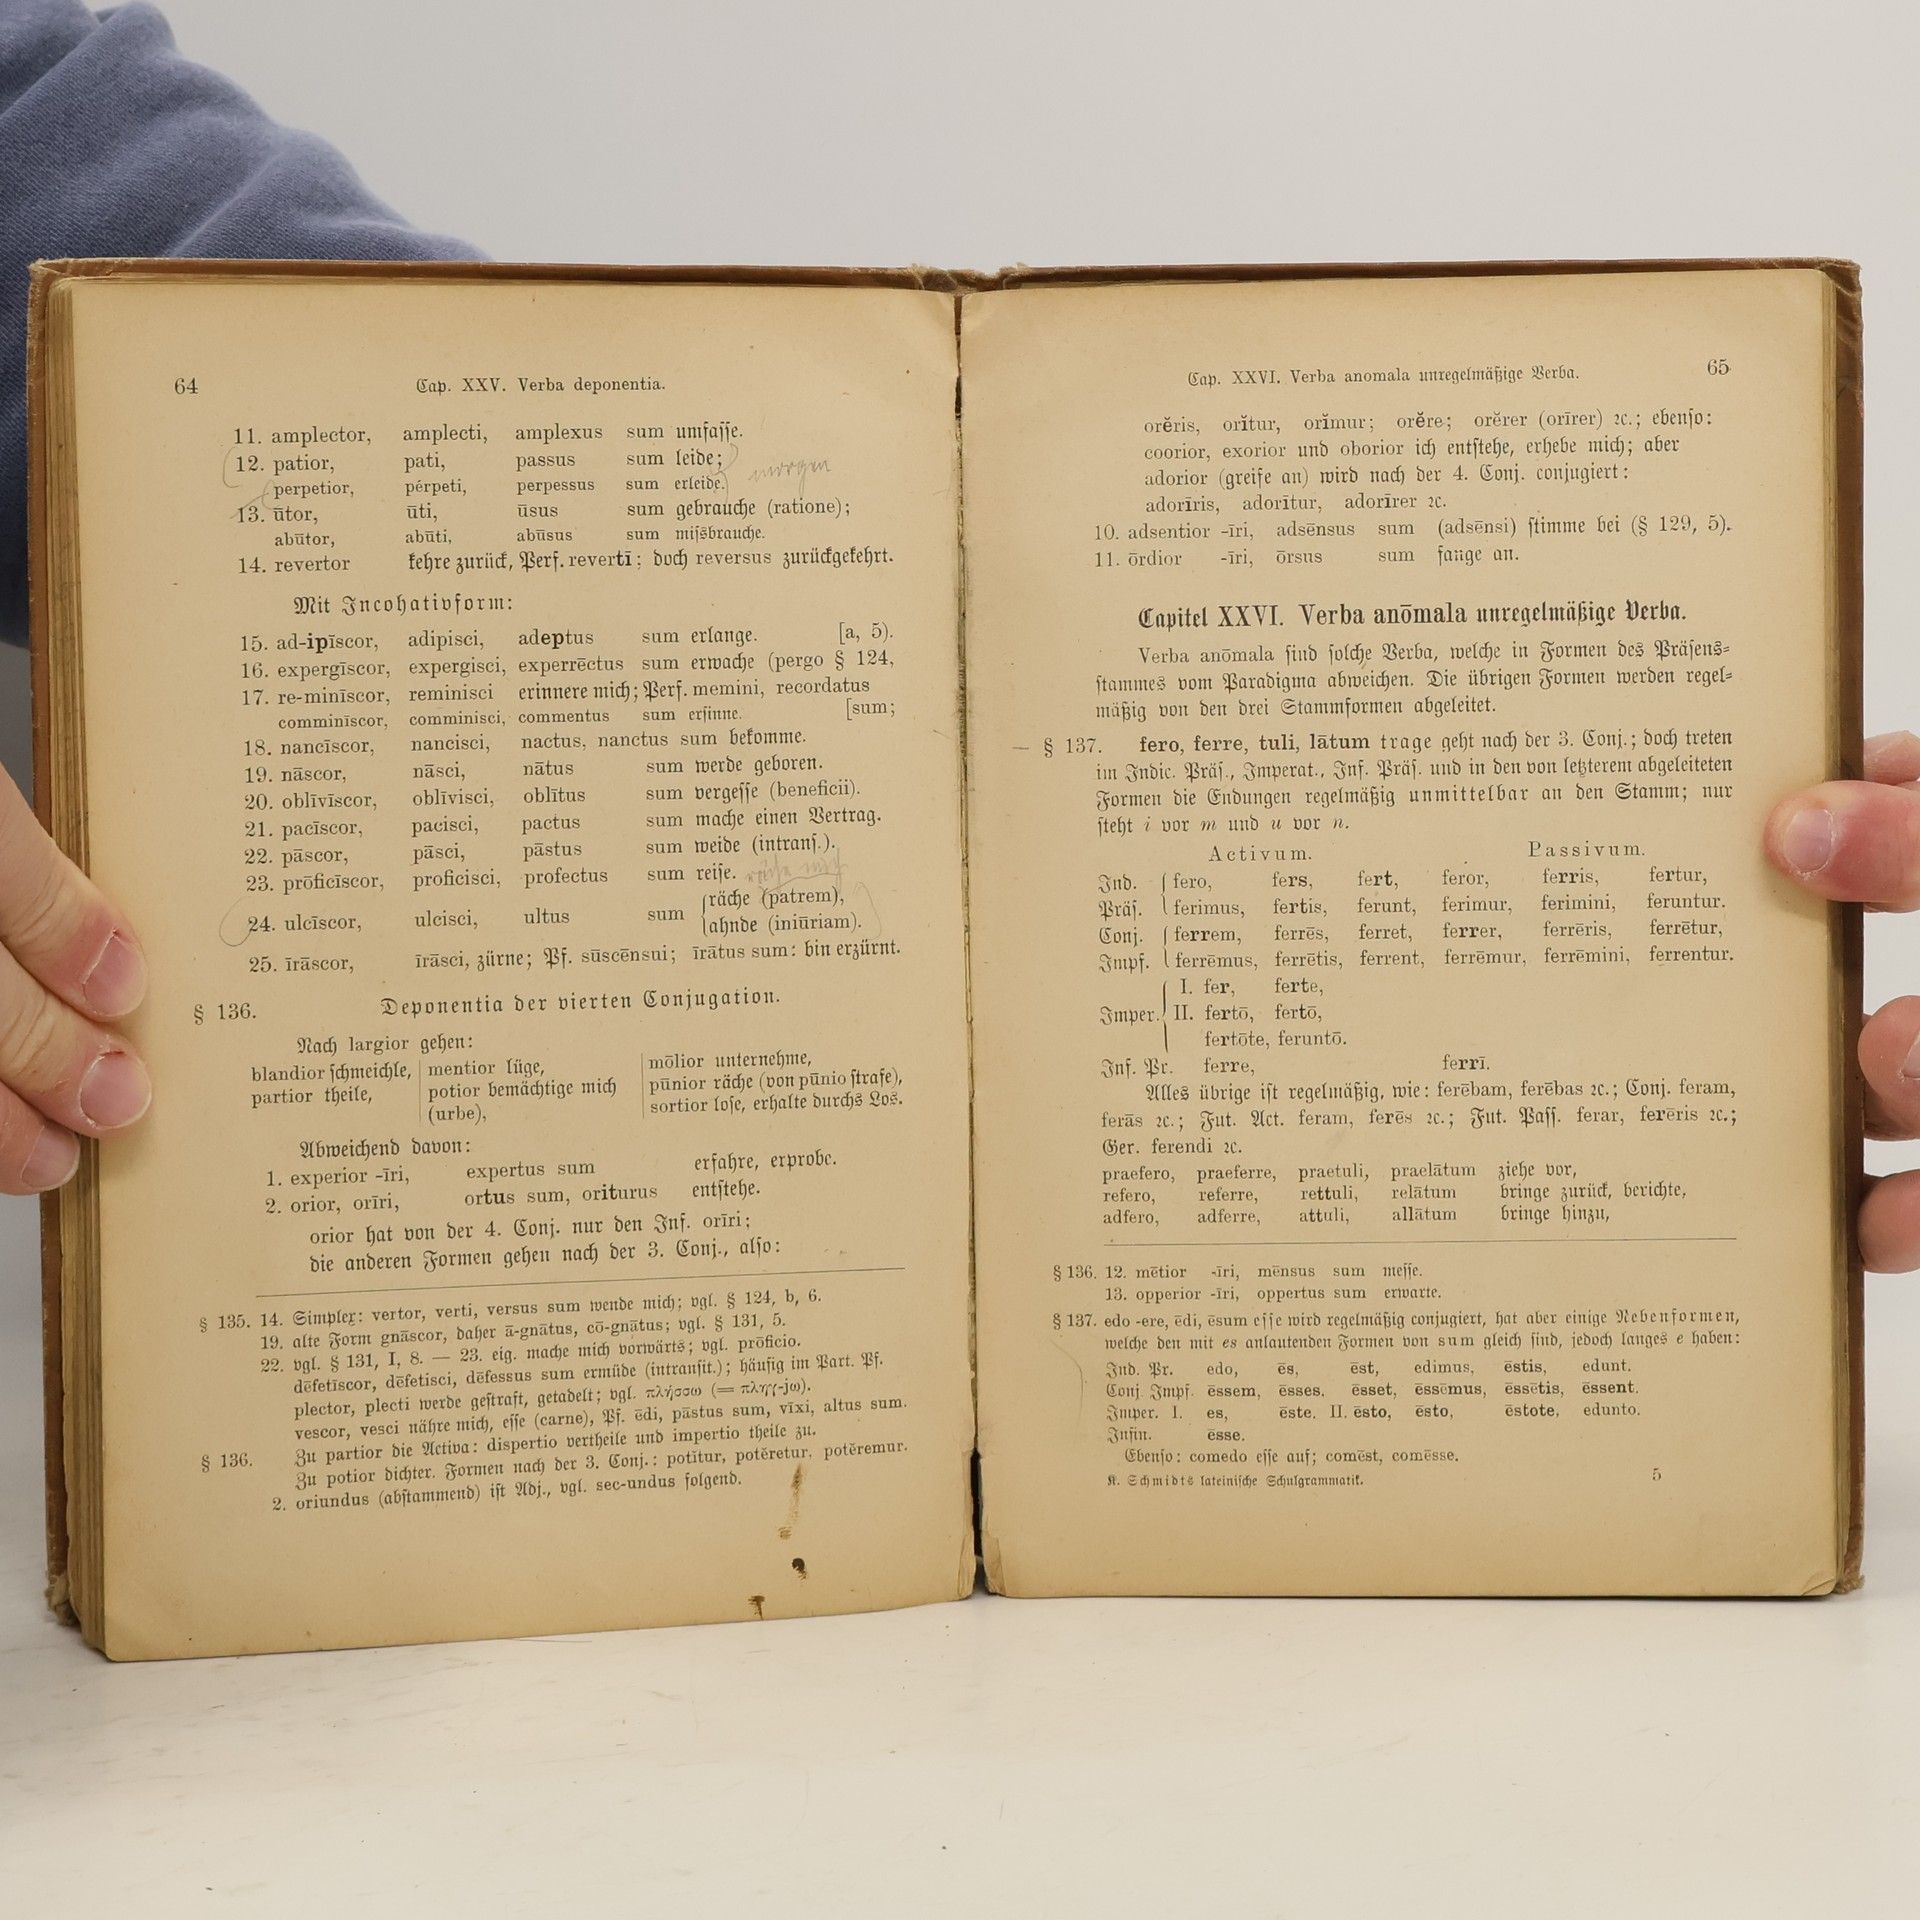 64
Cap. XXV. Verba deponentia.
11. amplector, amplecti, amplexus sum umfasse.
12. patior, pati, passus sum leide;
perpetior, pérpeti, perpessus sum erleide.
morgen
13. ūtor, ūti, ūsus sum gebrauche (ratione);
abūtor, abūti, abūsus sum missbrauche.
14. revertor kehre zurück, Perf. revertī; doch reversus zurückgekehrt.
Mit Incohativform:
15. ad-ipīscor, adipisci, adeptus sum erlange. [a, 5).
16. expergīscor, expergisci, experrēctus sum erwache (pergo § 124,
17. re-minīscor, reminisci erinnere mich; Perf. memini, recordatus
comminīscor, comminisci, commentus sum ersinne. [sum;
18. nancīscor, nancisci, nactus, nanctus sum bekomme.
19. nāscor, nāsci, nātus sum werde geboren.
20. oblīvīscor, oblīvisci, oblītus sum vergesse (beneficii).
21. pacīscor, pacisci, pactus sum mache einen Vertrag.
22. pāscor, pāsci, pāstus sum weide (intrans.).
23. prōficīscor, proficisci, profectus sum reise.
räche mich
24. ulcīscor, ulcisci, ultus sum {räche (patrem),
ahnde (iniūriam).
25. īrāscor, īrāsci, zürne; Pf. sūscēnsui; īrātus sum: bin erzürnt.
§ 136. Deponentia der vierten Conjugation.
Nach largior gehen:
blandior schmeichle, | mentior lüge, | mōlior unternehme,
partior theile, | potior bemächtige mich | pūnior räche (von pūnio strafe),
(urbe), | sortior lose, erhalte durchs Los.
Abweichend davon:
1. experior -īri, expertus sum erfahre, erprobe.
2. orior, orīri, ortus sum, oriturus entstehe.
orior hat von der 4. Conj. nur den Inf. orīri;
die anderen Formen gehen nach der 3. Conj., also:
§ 135. 14. Simplex: vertor, verti, versus sum wende mich; vgl. § 124, b, 6.
19. alte Form gnāscor, daher ā-gnātus, cō-gnātus; vgl. § 131, 5.
22. vgl. § 131, I, 8. — 23. eig. mache mich vorwärts; vgl. prōficio.
dēfetīscor, dēfetisci, dēfessus sum ermüde (intransit.); häufig im Part. Pf.
plector, plecti werde gestraft, getadelt; vgl. πλήσσω (= πληγ-jω).
vescor, vesci nähre mich, esse (carne), Pf. ēdi, pāstus sum, vīxi, altus sum.
§ 136. Zu partior die Activa: dispertio vertheile und impertio theile zu.
Zu potior dichter. Formen nach der 3. Conj.: potĭtur, potĕretur, potĕremur.
2. oriundus (abstammend) ist Adj., vgl. sec-undus folgend.
Cap. XXVI. Verba anomala unregelmäßige Verba.
65
orĕris, orĭtur, orĭmur; orĕre; orĕrer (orīrer) ꝛc.; ebenso:
coorior, exorior und oborior ich entstehe, erhebe mich; aber
adorior (greife an) wird nach der 4. Conj. conjugiert:
adorīris, adorītur, adorīrer ꝛc.
10. adsentior -īri, adsēnsus sum (adsēnsi) stimme bei (§ 129, 5).
11. ōrdior -īri, ōrsus sum fange an.
Capitel XXVI. Verba anōmala unregelmäßige Verba.
Verba anōmala sind solche Verba, welche in Formen des Präsens-
stammes vom Paradigma abweichen. Die übrigen Formen werden regel-
mäßig von den drei Stammformen abgeleitet.
§ 137. fero, ferre, tuli, lātum trage geht nach der 3. Conj.; doch treten
im Indic. Präs., Imperat., Inf. Präs. und in den von letzterem abgeleiteten
Formen die Endungen regelmäßig unmittelbar an den Stamm; nur
steht i vor m und u vor n.
Activum. Passivum.
Ind. { fero, fers, fert, feror, ferris, fertur,
Präs. ferimus, fertis, ferunt, ferimur, ferimini, feruntur.
Conj. { ferrem, ferrēs, ferret, ferrer, ferrēris, ferrētur,
Impf. ferrēmus, ferrētis, ferrent, ferrēmur, ferrēmini, ferrentur.
I. fer, ferte,
Imper. { II. fertō, fertō,
fertōte, feruntō.
Inf. Pr. ferre, ferrī.
Alles übrige ist regelmäßig, wie: ferēbam, ferēbas ꝛc.; Conj. feram,
ferās ꝛc.; Fut. Act. feram, ferēs ꝛc.; Fut. Pass. ferar, ferēris ꝛc.;
Ger. ferendi ꝛc.
praefero, praeferre, praetuli, praelātum ziehe vor,
refero, referre, rettuli, relātum bringe zurück, berichte,
adfero, adferre, attuli, allātum bringe hinzu,
§ 136. 12. mētior -īri, mēnsus sum messe.
13. opperior -īri, oppertus sum erwarte.
§ 137. edo -ere, ēdi, ēsum esse wird regelmäßig conjugiert, hat aber einige Nebenformen,
welche den mit es anlautenden Formen von sum gleich sind, jedoch langes e haben:
Ind. Pr. edo, ēs, ēst, edimus, ēstis, edunt.
Conj. Impf. ēssem, ēsses, ēsset, ēssēmus, ēssētis, ēssent.
Imper. I. es, ēste. II. ēsto, ēsto, ēstote, edunto.
Infin. ēsse.
Ebenso: comedo esse auf; comēst, comēsse.
K. Schmidts lateinische Schulgrammatik. 5